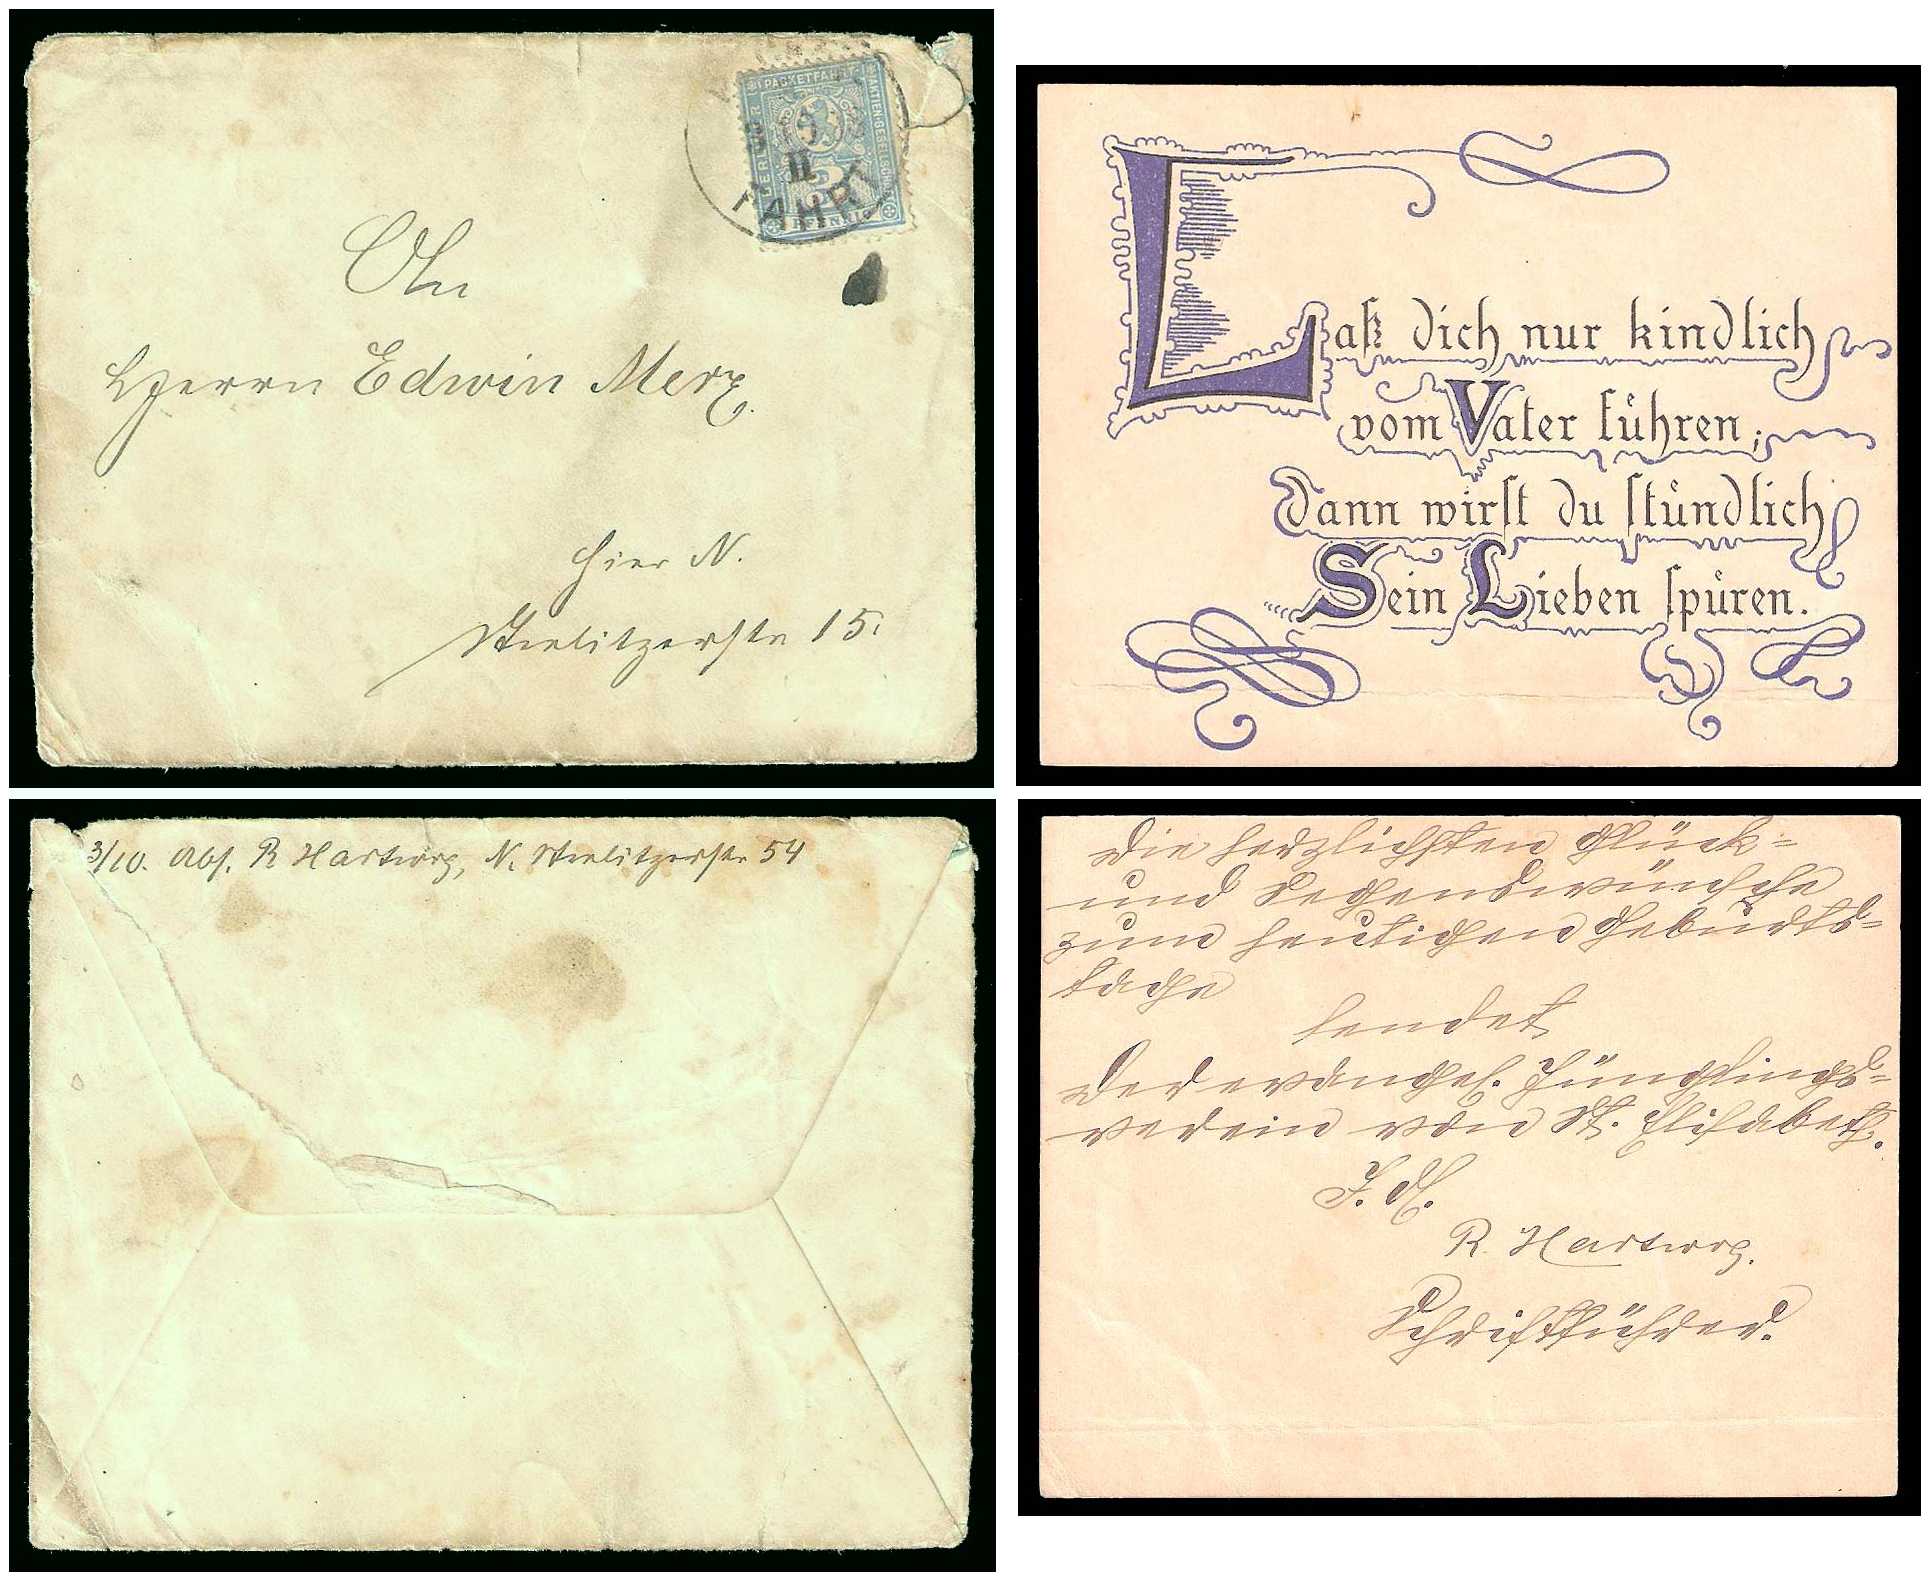 BERLINER
PACKETFAHRT-
AKTIEN-GESELLSCHAFT
3
PFENNIG
FAHRT
II
An
Herrn Edwin Merz.
Hier N.
Strelitzerstr 15.
Laß dich nur kindlich
vom Vater führen;
Dann wirst du stündlich
Sein Lieben spüren.
3/10. Abs. R Hartwig, N. Strelitzerstr 54
Die herzlichsten Glück=
und Segenswünsche
zum heutigen Geburts=
tage
sendet
Der evangel. Jünglings=
verein von St. Elisabeth.
I. A.
R. Hartwig.
Schriftführer.